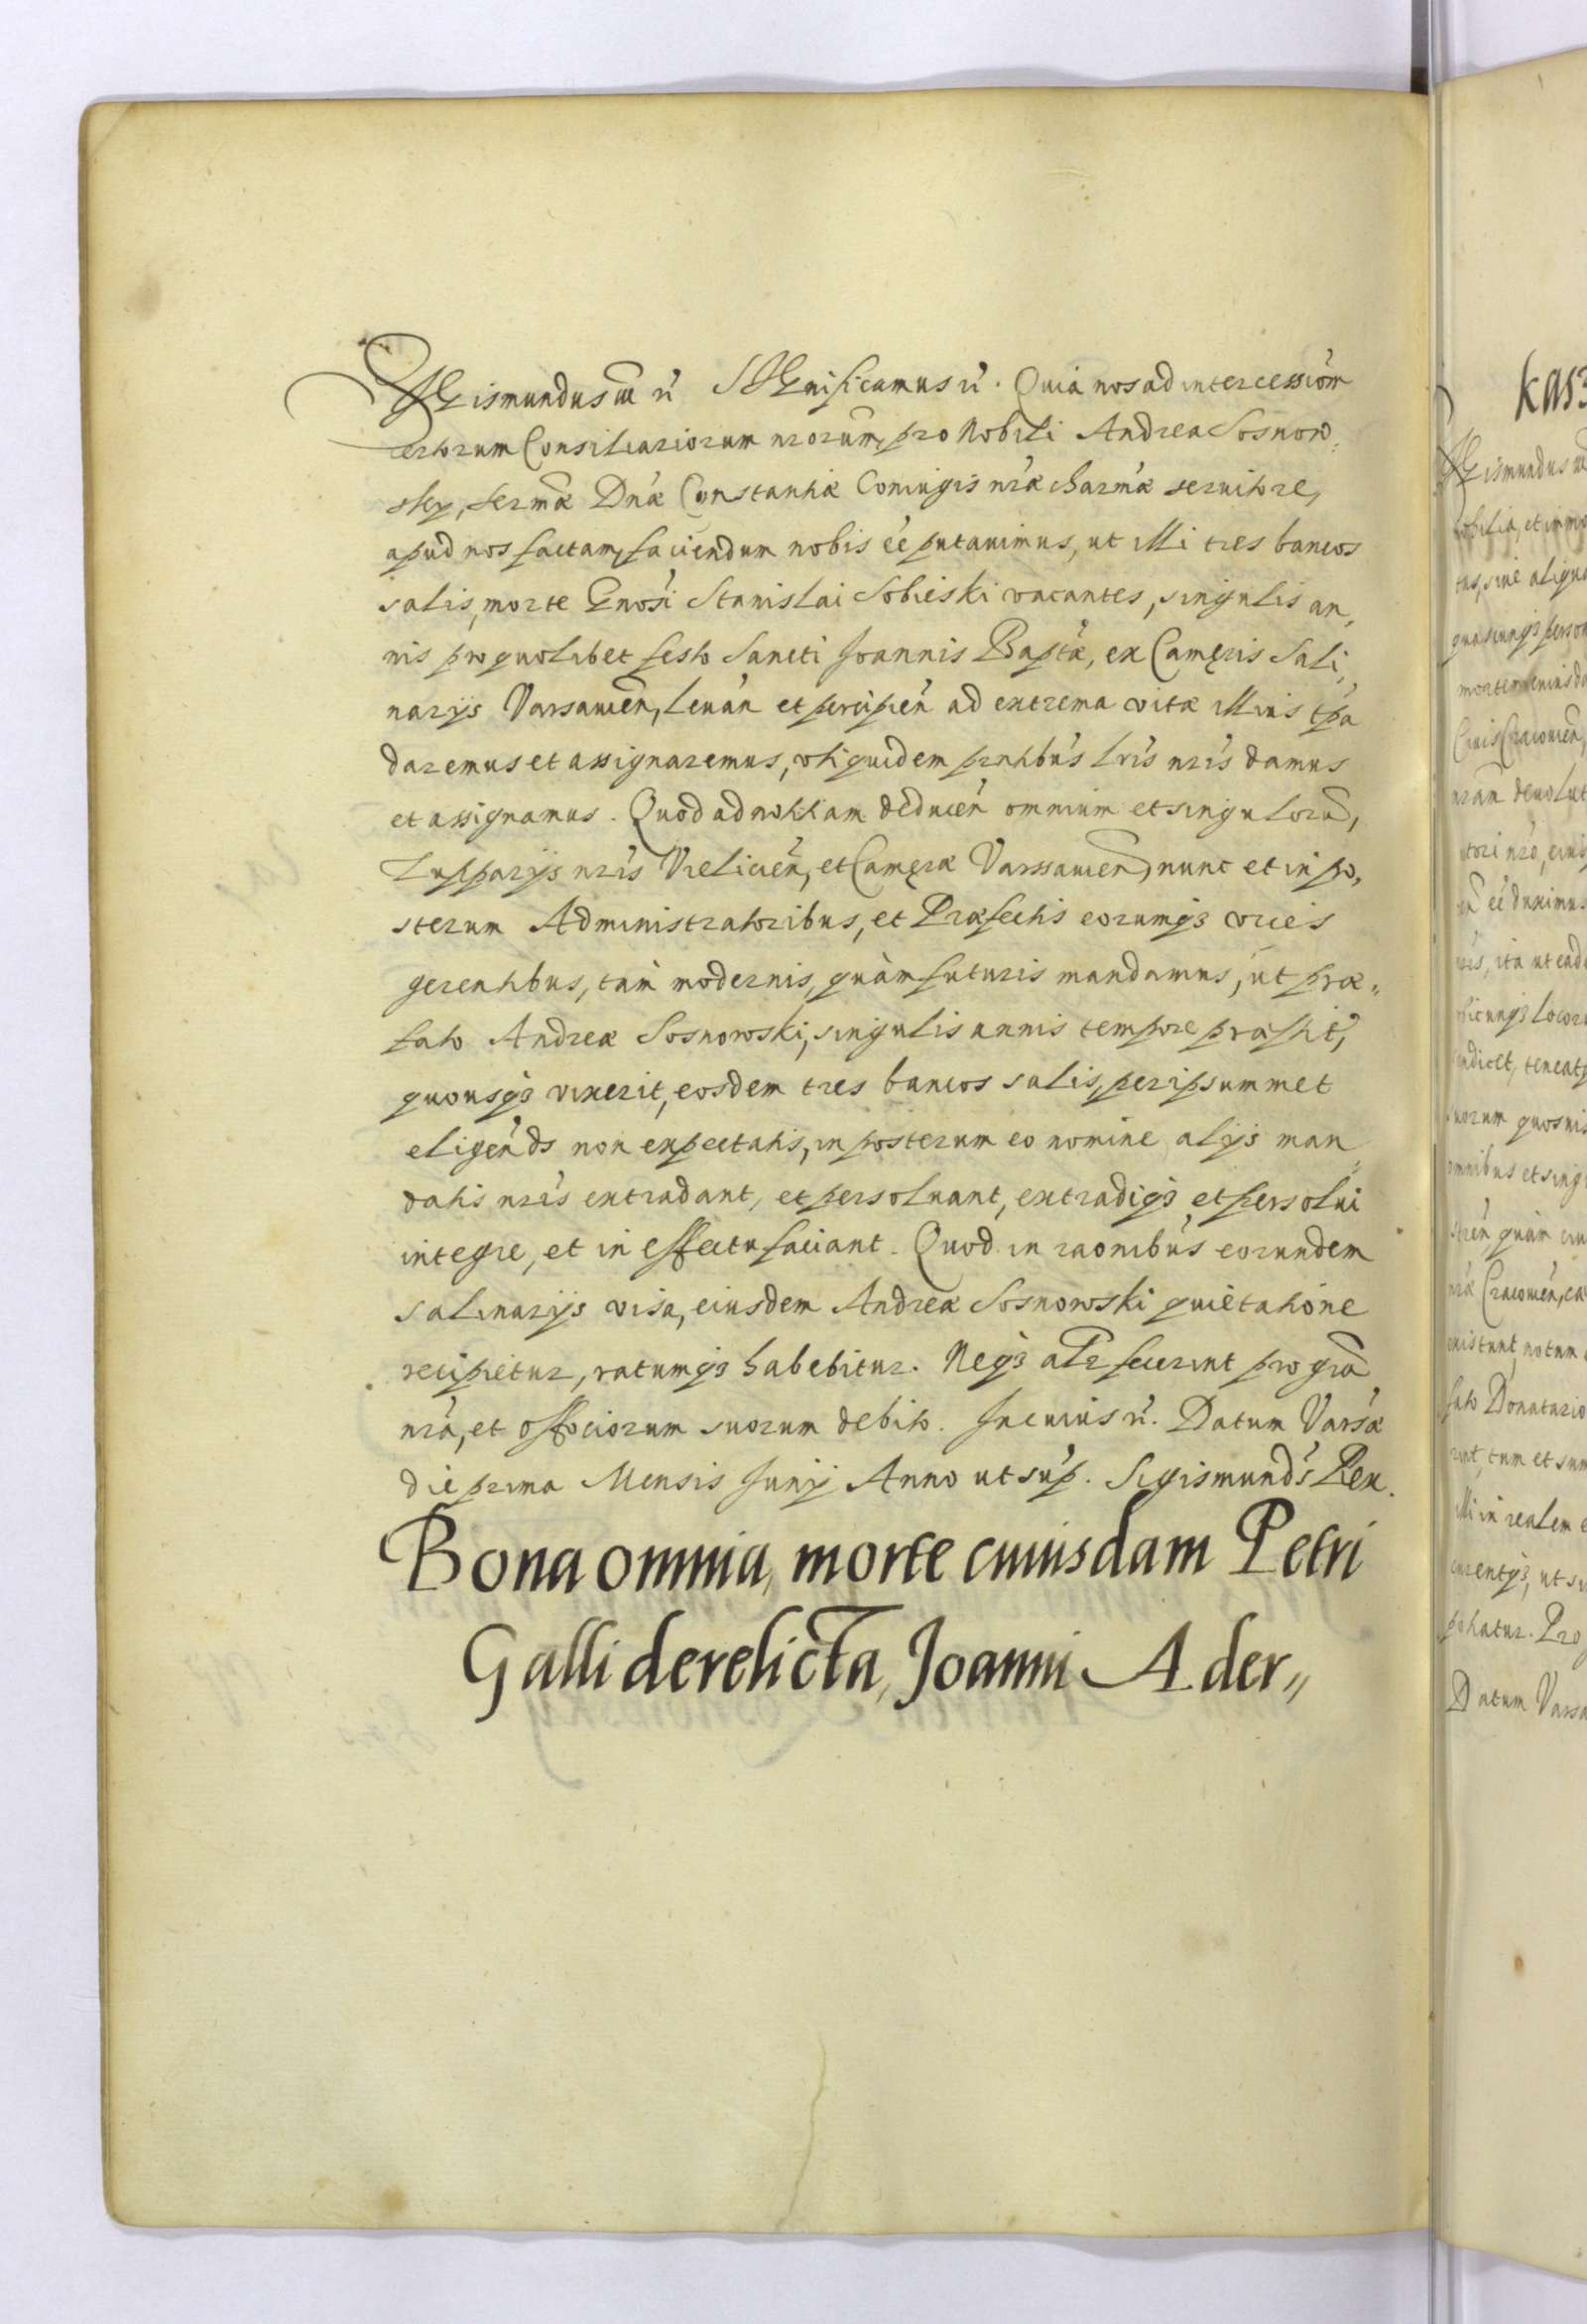 Sigismundus III rĩ Significamus rĩ. Quia nos ad intercessiõm
certorum Consiliariorum nrorum, pro Nobili Andrea Sosnow,
sky, sermæ Dnæ Constantiæ Coniugis nræ charmæ seruitore,
apud nos factam, faciendum nobis ẽe putauimus, ut illi tres bancos
salis, morte Gnosi Stanislai Sobieski vacantes, singulis an,
nis pro quolibet festo Sancti Joannis Baptæ, ex Cameris Sali,
narijs Varsauien̄, leuan̄ et percipien̄ ad extrema vitæ illius tp̃a
daremus et assignaremus, vti quidem pr̃ntibus lr̃is nris damus
et assignamus. Quod ad notitiam deducen̄ omnium et singuloru̅,
Zupparijs nris Vieliciẽn, et Cameræ Varssauien̄, nunc et in po,
sterum Administratoribus, et Præfectis eorumq3 vices
gerentibus, tàm modernis, quàm futuris mandamus, ut præ,,
fato Andreæ Sosnowski, singulis annis tempore præfixo,
quousq3 vixerit, eosdem tres bancos salis, per ipsummet
eligen̄ds non expectatis, in posterum eo nomine alijs man,,
datis nris extradant, et persoluant, extradiq3 et persolui
integre, et in effectu faciant. Quod in raonibus eorundem
salinarijs visa, eiusdem Andreæ Sosnowski quietatione
recipietur, ratumq3 habebitur. Neq3 altr fecerint pro gra̅
nra, et officiorum suorum debito. In cuius rĩ. Datum Varsæ
die prima Mensis Junij Anno ut sup̃. Sigismunds Rex.
Bona omnia, morte cuiusdam Petri
Galli derelicta, Joanni Ader,,